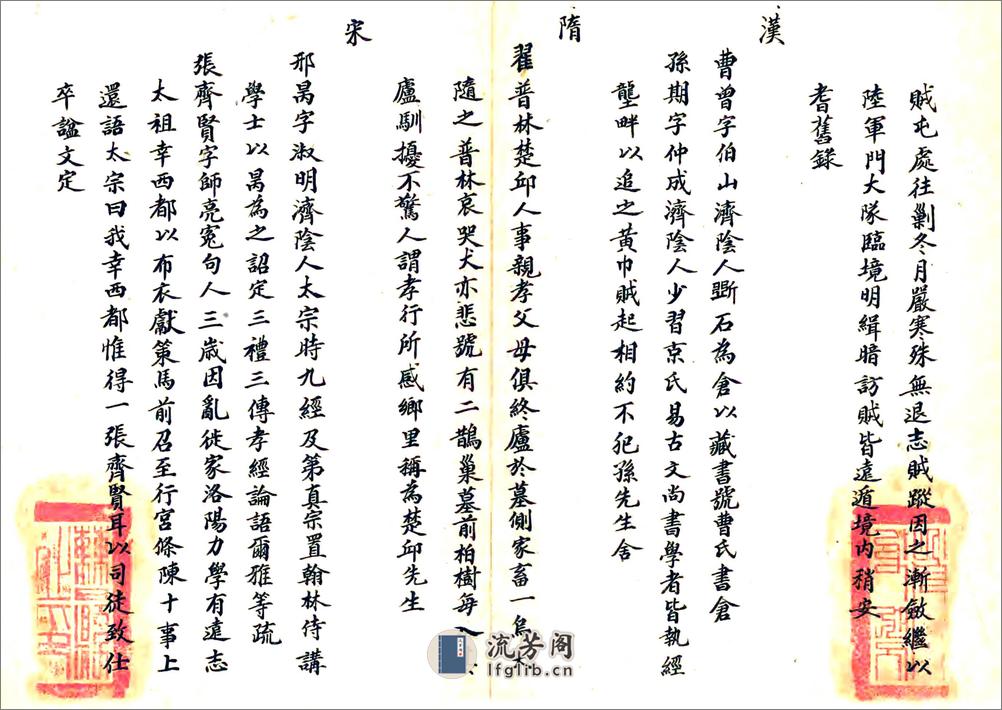 賊屯處往剿冬月嚴寒殊無退志賊蹤因之漸斂繼以
陸軍門大隊臨境明緝暗訪賊皆遠遁境內稍安
耆舊錄
漢
曹曾字伯山濟陰人斲石為倉以藏書號曹氏書倉
孫期字仲成濟陰人少習京氏易古文尚書學者皆執經
壟畔以追之黃巾賊起相約不犯孫先生舍
隋
翟普林楚邱人事親孝父母俱終廬於墓側家畜一烏犬
隨之普林哀哭犬亦悲號有二鵲巢墓前柏樹每入
廬馴擾不驚人謂孝行所感鄉里稱為楚邱先生
宋
邢昺字淑明濟陰人太宗時九經及第真宗置翰林侍講
學士以昺為之詔定三禮三傳孝經論語爾雅等疏
張齊賢字師亮冤句人三歲因亂徙家洛陽力學有遠志
太祖幸西都以布衣獻策馬前召至行宮條陳十事上
還語太宗曰我幸西都惟得一張齊賢耳以司徒致仕
卒諡文定
流芳阁
lfglib.cn